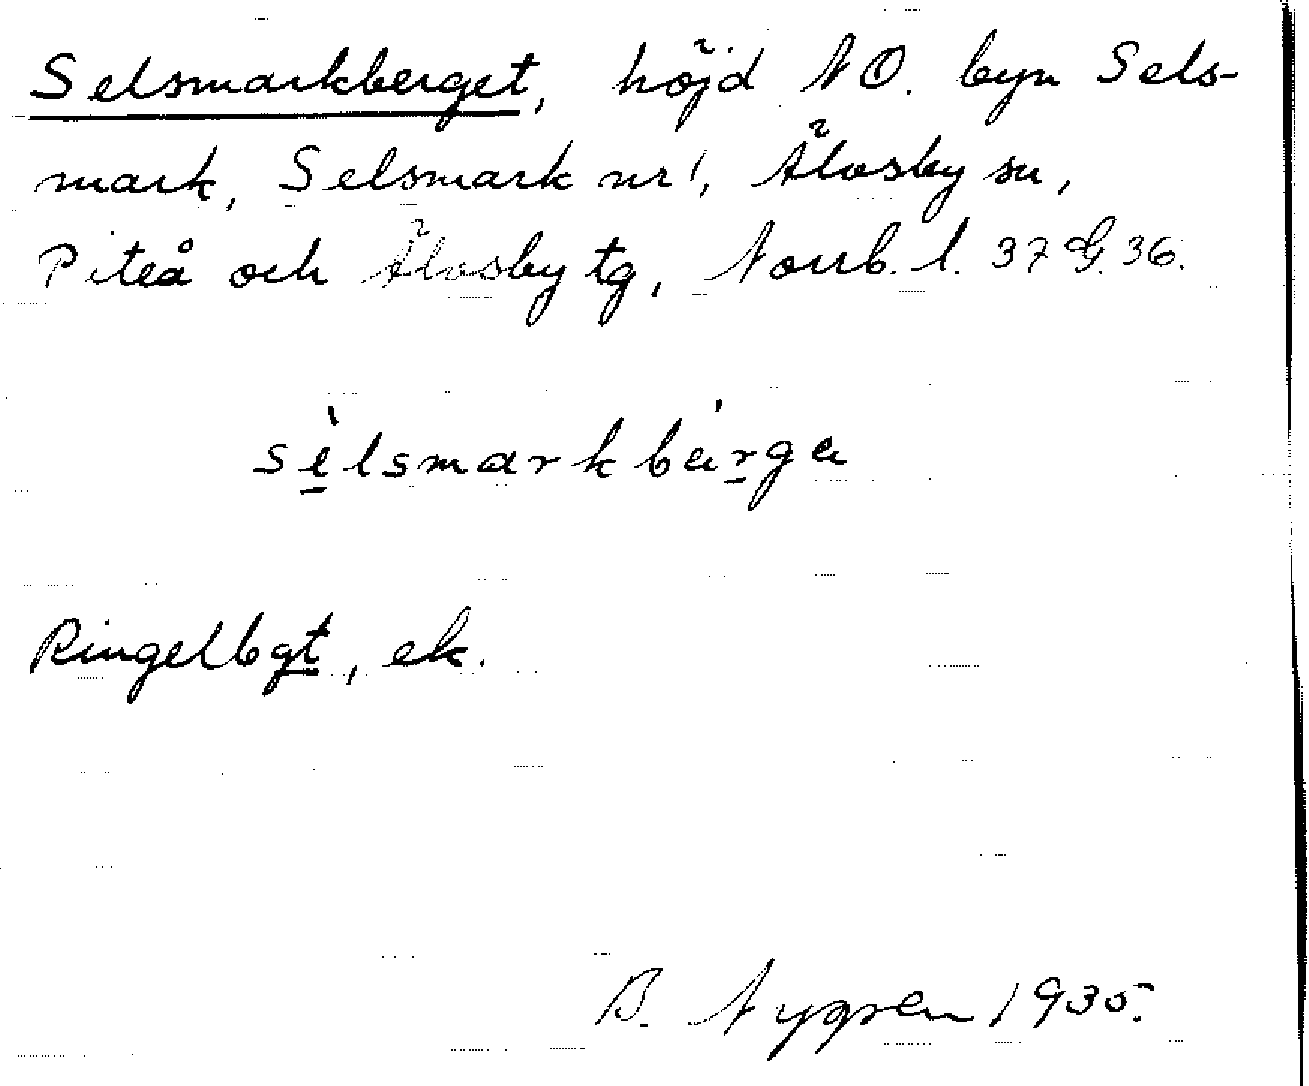 Selsmarkberget, höjd NO. byn Sels-
mark, Selsmark nr 1, Älvsby sn,
Piteå och Älvsby tg, Norrb. l. 37 G. 36.
sèlsmarkbärga
Ringelbgt, ek.
B. Nygren 1935.